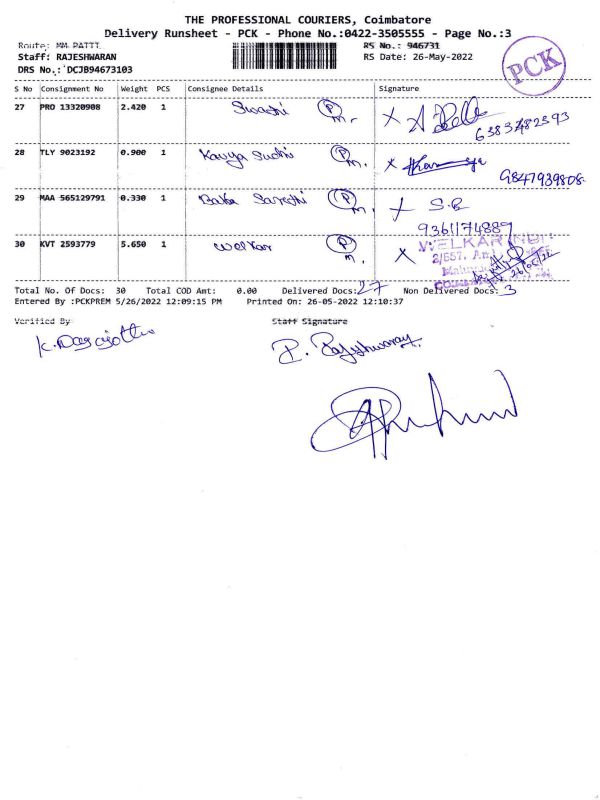 THE PROFESSIONAL COURIERS, Coimbatore
Delivery Runsheet - PCK - Phone No.:0422-3505555 - Page No.:3
Route: MM PATTI
RS No.: 946731
Staff: RAJESHWARAN
RS Date: 26-May-2022
DRS No.: DCJB94673103
PCK
S No Consignment No Weight PCS Consignee Details Signature
27 PRO 13320908 2.420 1 Swathi P M.
6383482593
28 TLY 9023192 0.900 1 Kavya Sudhi P M.
9847939808
29 MAA 565129791 0.330 1 Baba Sarathi P M. S.B
9361174889
30 KVT 2593779 5.650 1 Welkar P M.
WELKAR
2/557,
26/05/22
Total No. Of Docs: 30 Total COD Amt: 0.00 Delivered Docs: 27 Non Delivered Docs: 3
Entered By :PCKPREM 5/26/2022 12:09:15 PM Printed On: 26-05-2022 12:10:37
Verified By
Staff Signature